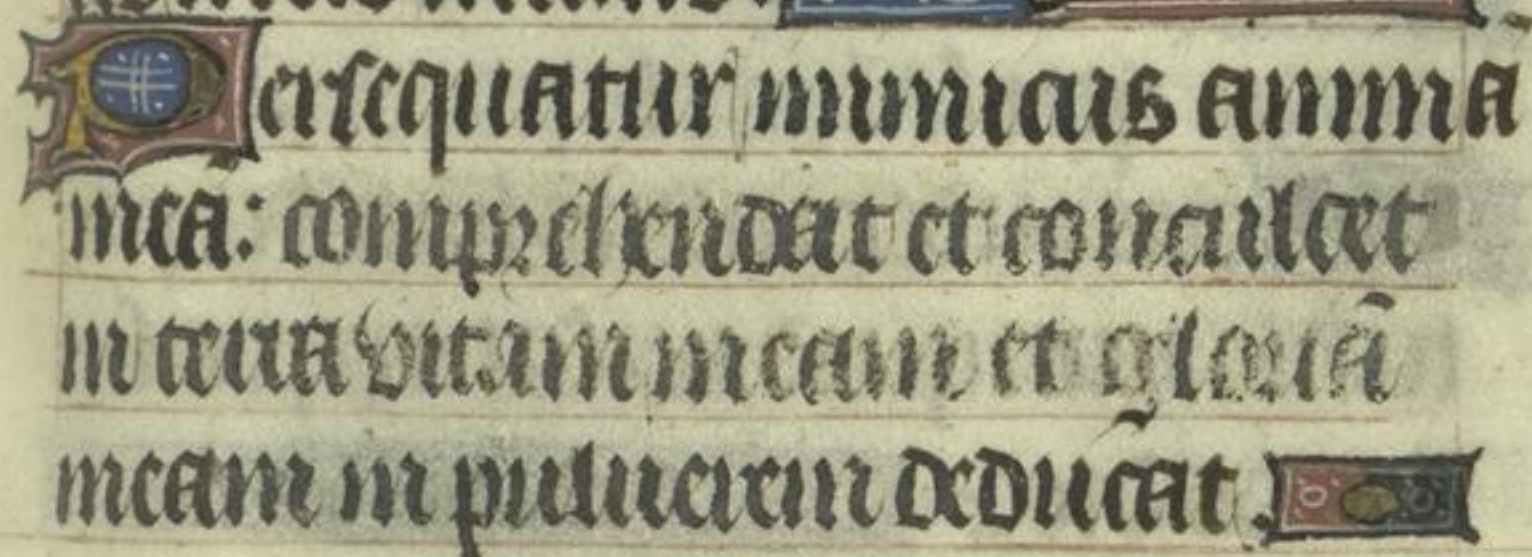 Persequatur inimicus anima
mea: comprehendat et conculcet
in terra vitam meam et gloriā
meam in puluerem deducāt.